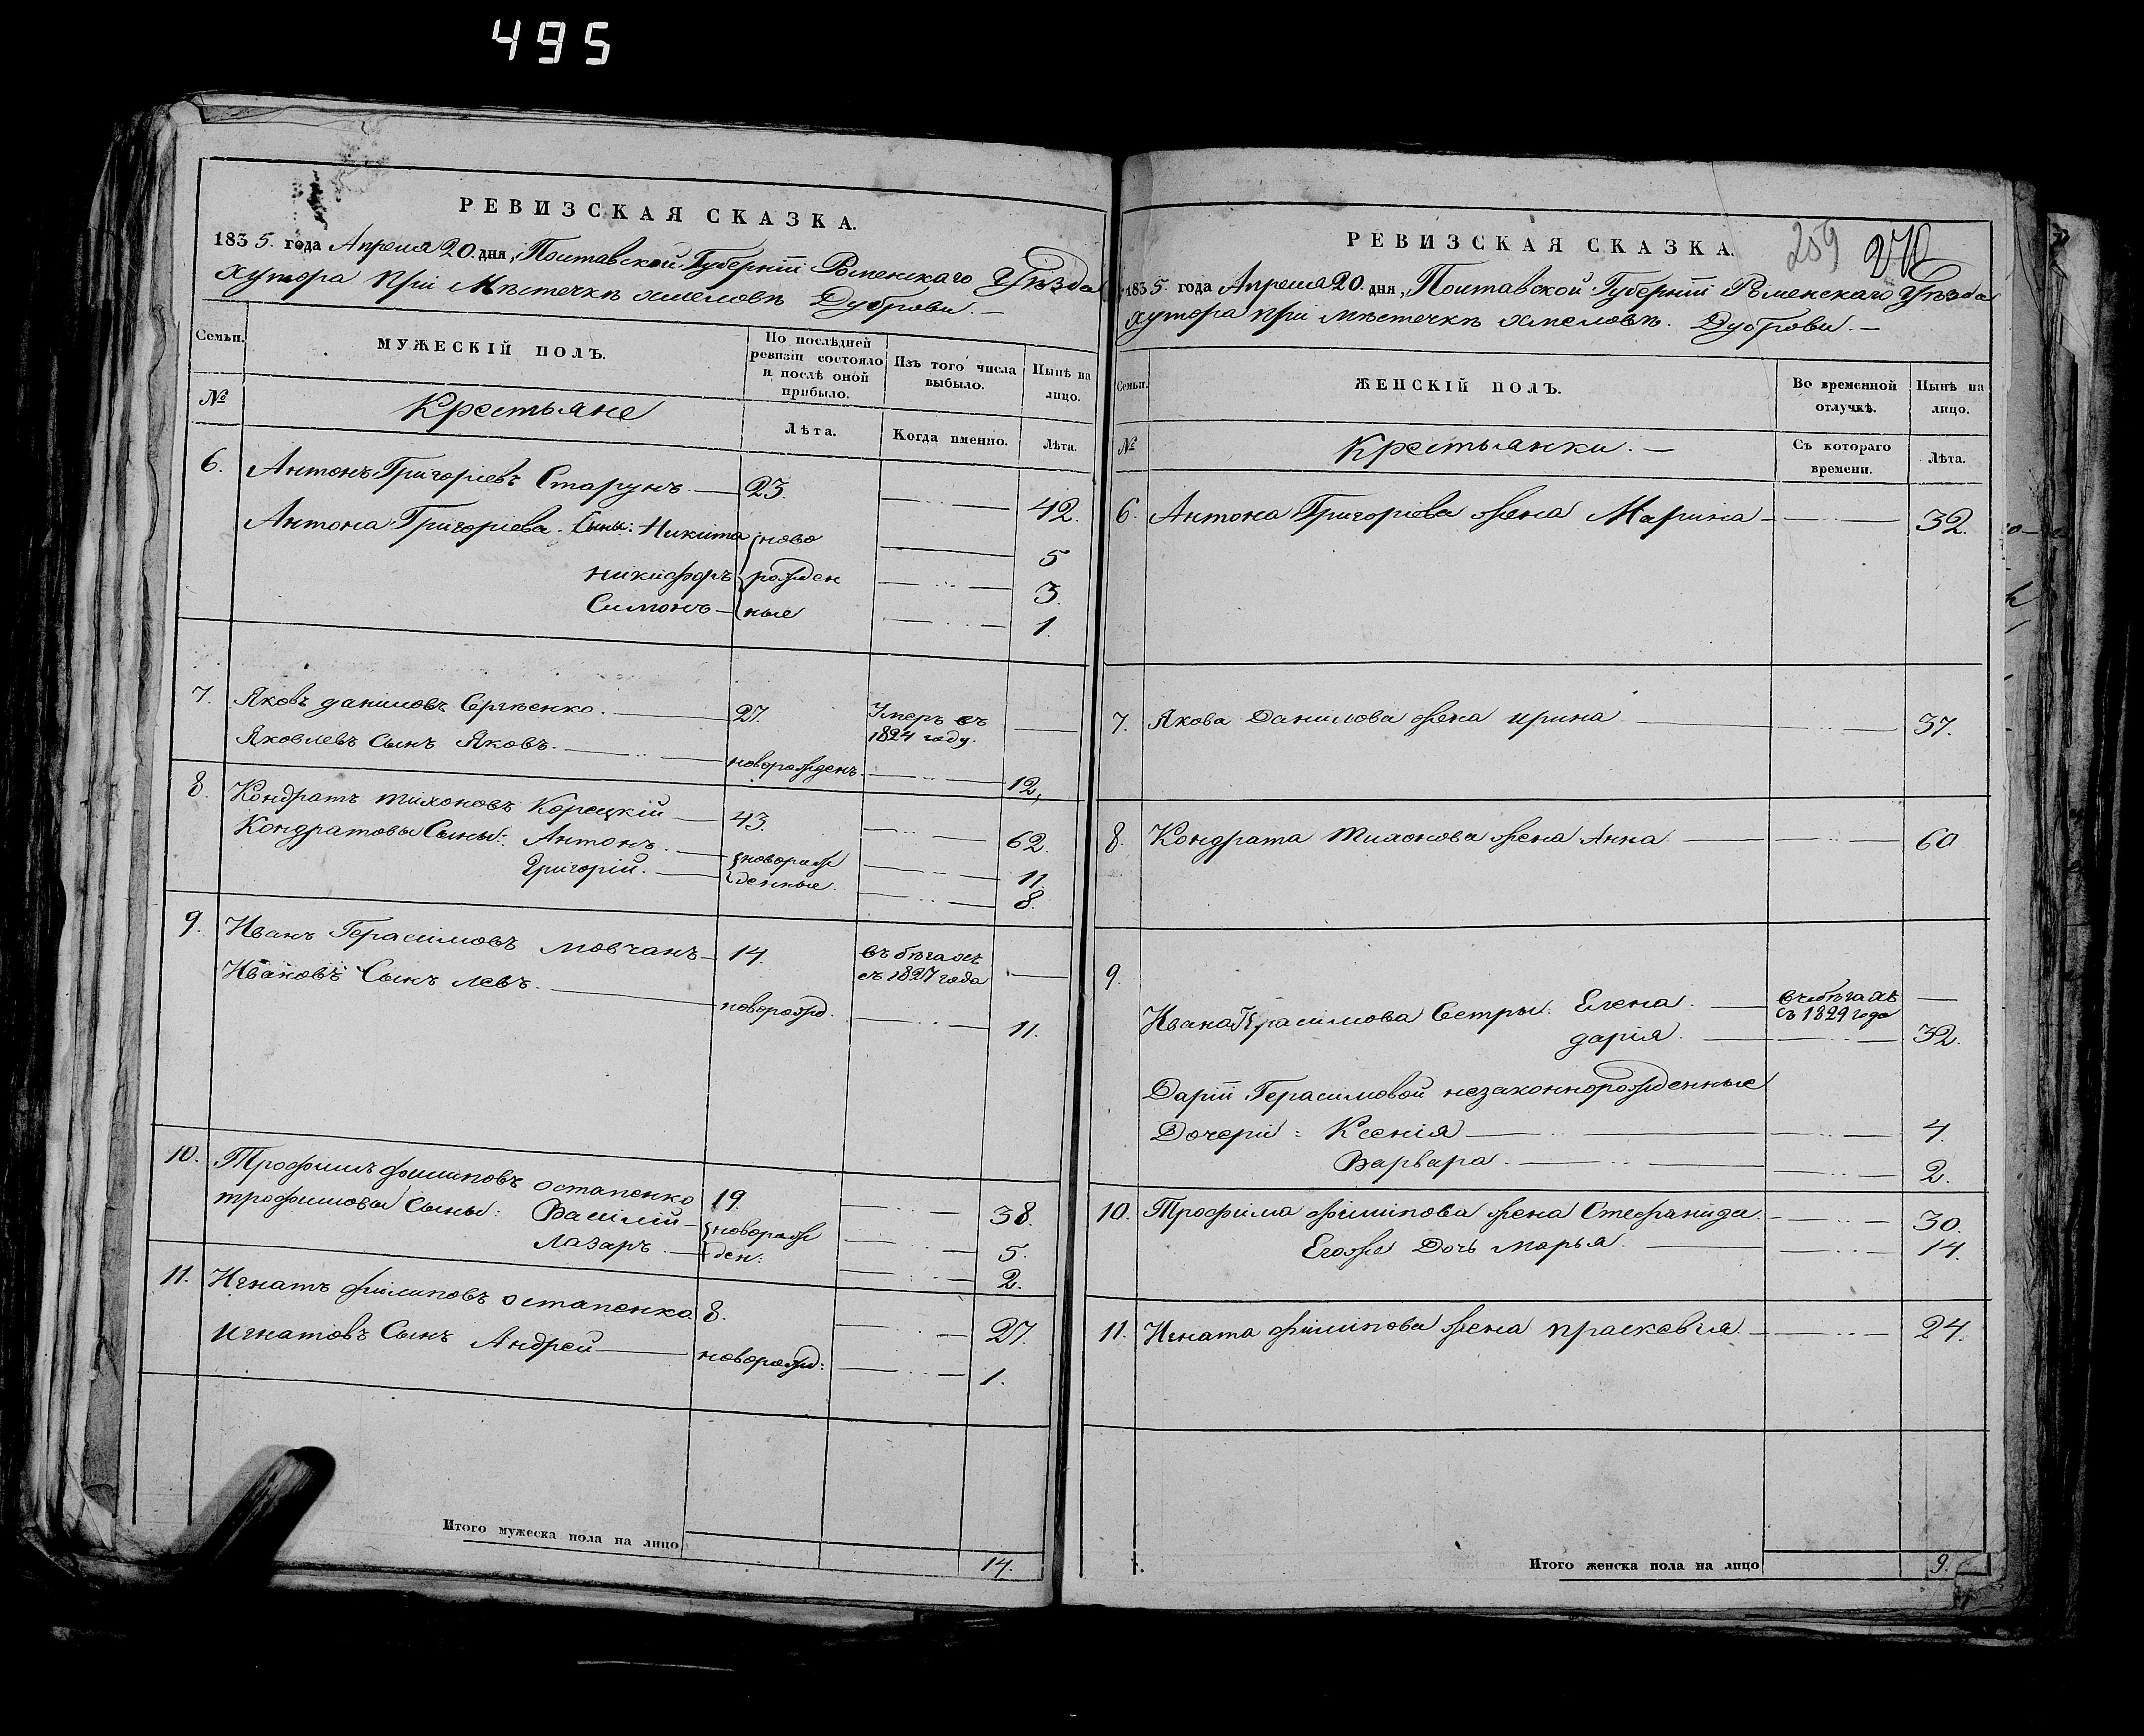 495
РЕВИЗСКАЯ СКАЗКА.
1835. года Апреля 20. дня, Полтавской Губерніи Роменскаго Уѣзда
хутора при Мѣстечкѣ Хмеловѣ Дубровы.
Семьи.
МУЖЕСКІЙ ПОЛЪ.
По послѣдней ревизіи состояло и послѣ оной прибыло.
Изъ того числа выбыло.
Нынѣ на лицо.
№
Крестьяне
Лѣта.
Когда именно.
Лѣта.
6. Антонъ Григоріевъ Старунъ 23. 42.
Антона Григоріева Сыны: Никита ново 5
Никифоръ рожден 3.
Симонъ ные 1.
7. Яковъ Даниловъ Сергѣенко. 27. Умеръ въ 1824 году.
Яковлевъ Сынъ Яковъ. новорожденъ. 12.
8. Кондратъ Тихоновъ Корецкій 43. 62.
Кондратовы Сыны: Антонъ. новорож 11.
Григорій. денные. 8.
9. Иванъ Герасимовъ Мовчанъ 14. въ бѣгахъ съ 1827 года
Ивановъ Сынъ Левъ. новорожд. 11.
10. Трофимъ Филиповъ Остапенко 19. 38.
Трофимовы Сыны: Василій новорож 5.
Лазарь. ден: 2.
11. Игнатъ Филиповъ Остапенко. 8. 27.
Игнатовъ Сынъ Андрей новорожд: 1.
Итого мужеска пола на лицо 14.
259 270
РЕВИЗСКАЯ СКАЗКА.
1835. года Апреля 20. дня, Полтавской Губерніи Роменскаго Уѣзда
хутора при Мѣстечкѣ Хмеловѣ. Дубровы.
Семьи.
ЖЕНСКІЙ ПОЛЪ.
Во временной отлучкѣ.
Нынѣ на лицо.
№
Крестьянки.
Съ котораго времени.
Лѣта.
6. Антона Григоріева жена Марина 32.
7. Якова Данилова жена Ирина 37.
8. Кондрата Тихонова жена Анна 60
9.
Ивана Герасимова Сестры: Елена. въ бѣгахъ съ 1829 года
Дарія. 32.
Даріи Герасимовой незаконнорожденные
Дочери: Ксенія 4.
Варвара. 2.
10. Трофима Филипова жена Стефанида. 30.
Егоже Дочь Марья. 14.
11. Игната Филипова жена Прасковья. 24.
Итого женска пола на лицо 9.